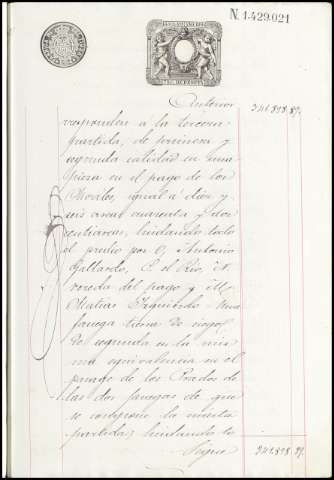 N. 1.429.021
Anterior 341.898.89.
responden á la tercera
partida, de primera y
segunda calidad en una
pieza en el pago de los
Morales, igual á diez y
seis areas cuarenta y dos
centiareas, lindando todo
el predio por O, Antonio
Gallardo, P. el Rio, N.
vereda del pago y M.
Matias Izquierdo. Una
fanega tierra de riego
de segunda en la mis
ma equivalencia en el
pago de los Prados de
las dos fanegas de que
se compone la cuarta
partida; lindando to
Sigue 341.898.89.